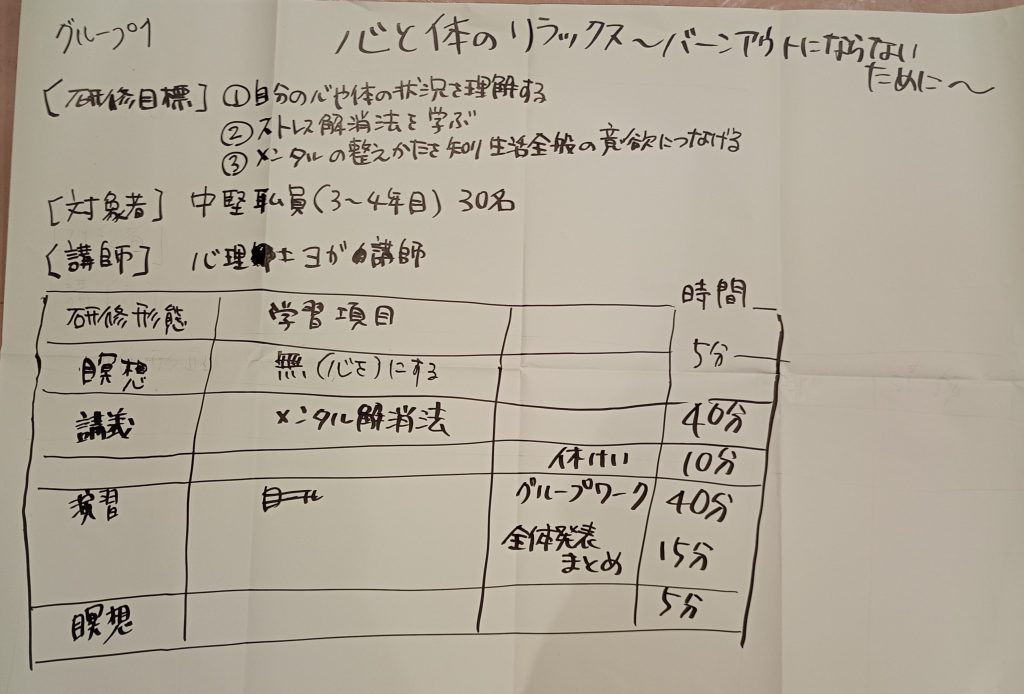 グループ1
心と体のリラックス〜バーンアウトにならない
ために〜
[研修目標] ①自分の心や体の状況を理解する
②ストレス解消法を学ぶ
③メンタルの整えかたを知り生活全般の意欲につなげる
[対象者] 中堅職員(3〜4年目) 30名
[講師] 心理士 ヨガ講師
時間
研修形態 学習項目
瞑想 無(心を)にする 5分
講義 メンタル解消法 40分
休けい 10分
演習 グループワーク 40分
全体発表 15分
まとめ
瞑想 5分